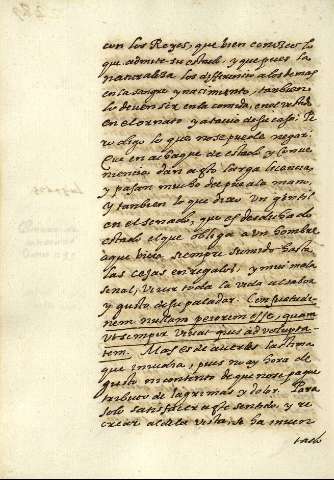 con los Reyes, que bien conozco lo
que admite su estado y que pues la
naturaleza los differencio a los demas
en la sangre y nacimiento, tambien
lo deven ser en la comida, en el vestido
en el ornato y atavio de su casa. Pe
ro digo lo que no se puede negar.
Que en achaque de estado y conve
niencia dan a esto larga licencia,
y pasan mucho de pie a la mano,
y tambien lo que dixo un gentil
en el senado, que es desdichado
estado el que obliga a un hombre
a que viva siempre sumido hasta
las cejas en regalos, y muy mala
señal, vivir toda la vida al sabor
y gusto de su paladar. Consuetudi
nem nullam peiorem esse, quam
ut semper vivas quasi ad volupta
tem. Mas es de averles lastima
que no ay hora de
gusto ni contento de que no se pague
tributo de lagrimas y dolor. Para
solo satisfacer a este sentido, y re
crear al de la vista, se ha inven
tado